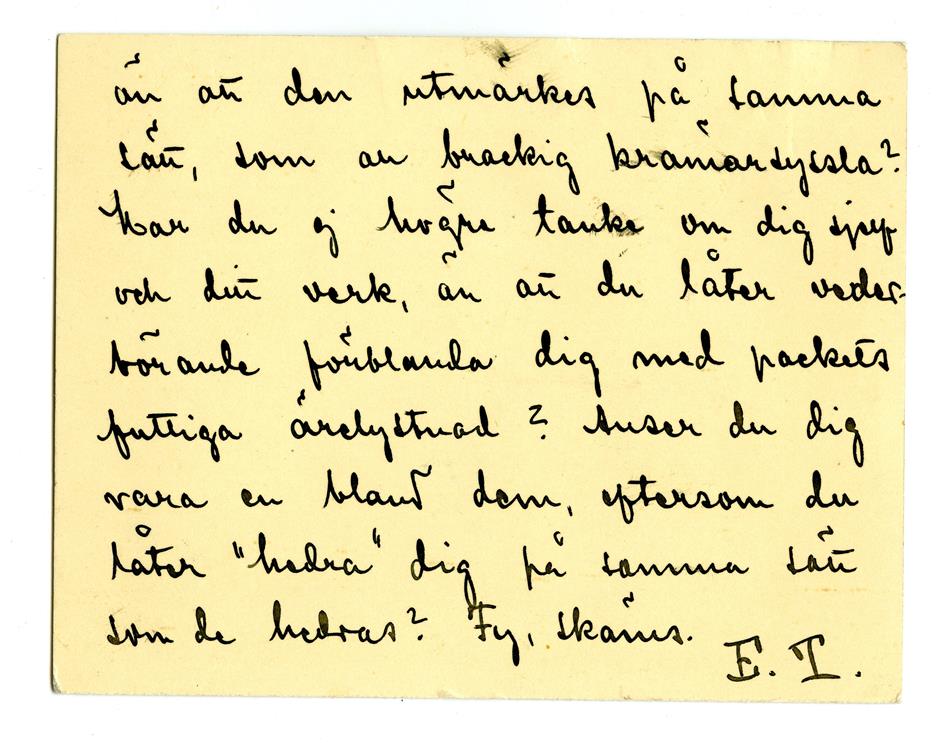 än att den utmärkes på samma
sätt, som en brackig krämarsyssla?
Har du ej högre tanke om dig sjelf
och ditt verk, än att du låter veder-
börande förblanda dig med packets
futtiga ärelystnad? Anser du dig
vara en bland dem, eftersom du
låter "hedra" dig på samma sätt
som de hedras? Fy, skäms.
E. T.